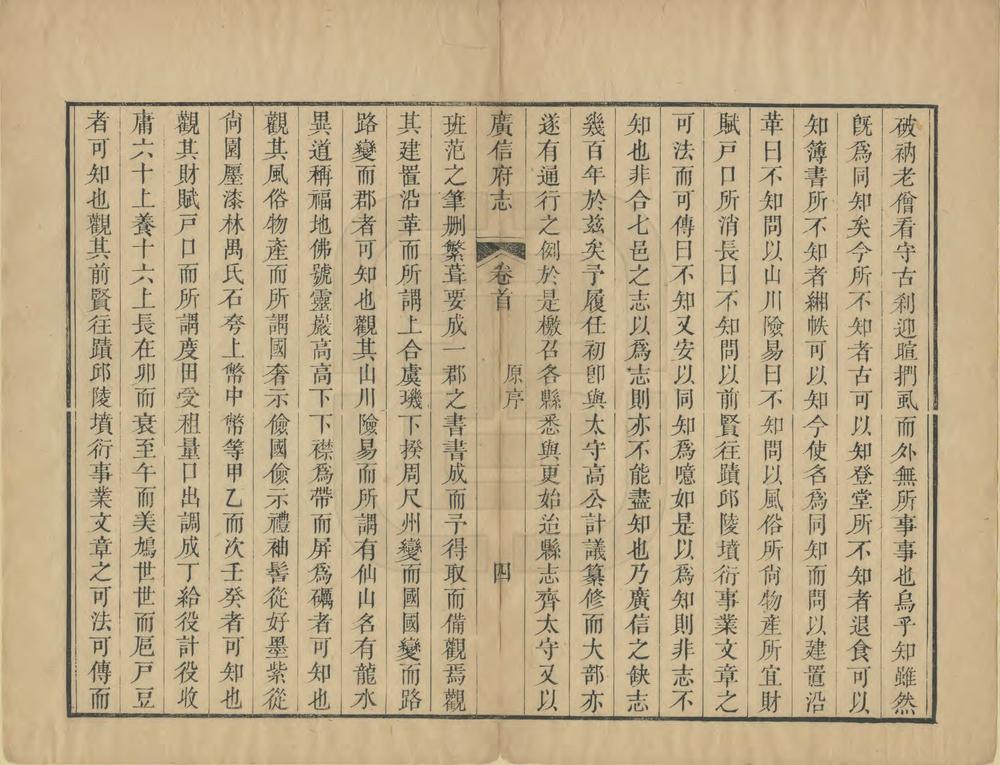 破衲老僧看守古刹迎暄捫虱而外無所事事也烏乎知雖然
旣爲同知矣今所不知者古可以知登堂所不知者退食可以
知簿書所不知者緗帙可以知今使名爲同知而問以建置沿
革曰不知問以山川險易曰不知問以風俗所尙物產所宜財
賦戸口所消長曰不知問以前賢往蹟邱陵墳衍事業文章之
可法而可傳曰不知又安以同知爲噫如是以爲知則非志不
知也非合七邑之志以爲志則亦不能盡知也乃廣信之缺志
幾百年於茲矣予履任初卽與太守高公計議纂修而大部亦
遂有通行之例於是檄召各縣悉與更始迨縣志齊太守又以
廣信府志 卷首 原序 四
班范之筆删繁葺要成一郡之書書成而予得取而備觀焉觀
其建置沿革而所謂上合虞璣下揆周尺州變而國國變而路
路變而郡者可知也觀其山川險易而所謂有仙山名有龍水
異道稱福地佛號靈巖高高下下襟爲帶而屏爲礪者可知也
觀其風俗物產而所謂國奢示儉國儉示禮袖髻從好墨紫從
尙園屋漆林禺氏石夸上幣中幣等甲乙而次壬癸者可知也
觀其財賦戸口而所謂度田受租量口出調成丁給役計役收
庸六十上養十六上長在卯而衰至午而美鳩世世而扈戸豆
者可知也觀其前賢往蹟邱陵墳衍事業文章之可法可傳而